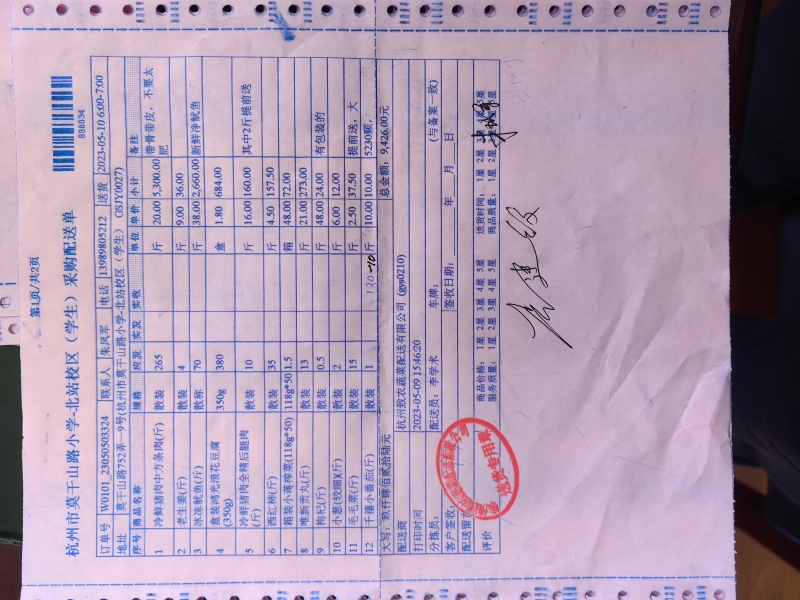 第1页/共2页
杭州市莫干山路小学-北站校区（学生）采购配送单
888034
订单号 W0101_23050503324 联系人 朱凤军 电话 13989805212 送货 2023-05-10 6:00-7:00
地址 莫干山路752弄一9号(杭州市莫干山路小学-北站校区（学生） GSJY0027)
序号 商品名称 规格 应发 实发 实收 单位 单价 小计 备注
1 冷鲜猪肉中方条肉(斤) 散装 265 斤 20.00 5,300.00 带骨带皮，不要太肥
2 老生姜(斤) 散装 4 斤 9.00 36.00
3 冰冻鱿鱼(斤) 散称 70 斤 38.00 2,660.00 新鲜净鱿鱼
4 盒装鸿光浪花豆腐(350g) 350g 380 盒 1.80 684.00
5 冷鲜猪肉全精后腿肉(斤) 散装 10 斤 16.00 160.00 其中2斤提前送
6 西红柿(斤) 散装 35 斤 4.50 157.50
7 箱装小薄榨菜(118g*50) 118g*50 1.5 箱 48.00 72.00
8 唯新贡丸(斤) 散装 13 斤 21.00 273.00
9 枸杞(斤) 散装 0.5 斤 48.00 24.00 有包装的
10 小葱(较细)(斤) 散装 2 斤 6.00 12.00
11 毛毛菜(斤) 散装 15 斤 2.50 37.50 提前送，大
12 千禧小番茄(斤) 散装 1 斤 10.00 10.00 5230颗，
大写：玖仟肆佰贰拾陆元 总金额：9,426.00元
配送商 杭州致农蔬菜配送有限公司 (gys0210)
打印时间 2023-05-09 15:46:20
分拣员： 配送员：李学术 车牌： (与备案一致)
客户签收 签收日期： 年 月 日
配送留
评价 商品价格： 1星 2星 3星 4星 5星 送货时间： 1星 2星 3星 4星 5星
服务质量： 1星 2星 3星 4星 5星 商品质量： 1星 2星
送货专用章